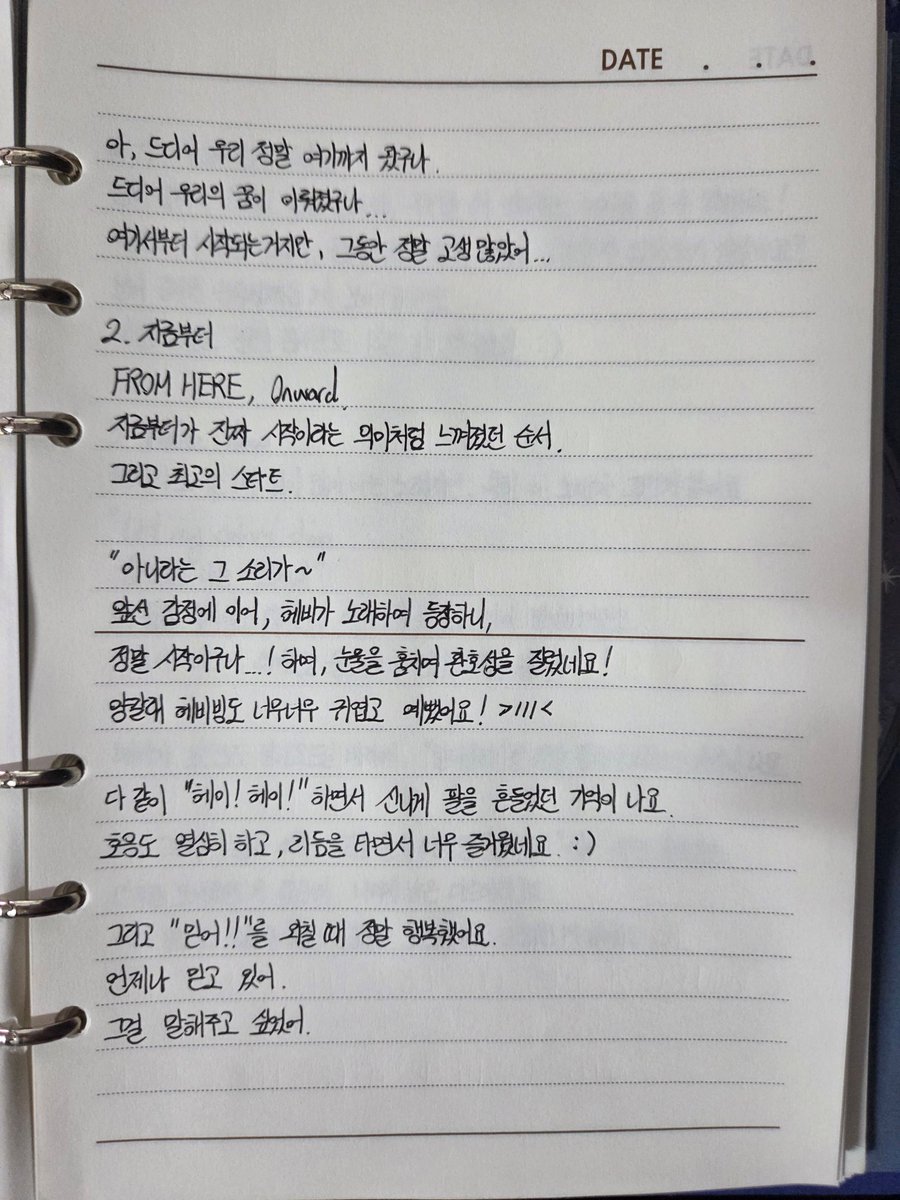 DATE . . .
아, 드디어 우리 정말 여기까지 왔구나.
드디어 우리의 꿈이 이뤄졌구나...
여기서부터 시작되는거지만, 그동안 정말 고생 많았어...
2. 지금부터
FROM HERE, Onward.
지금부터가 진짜 시작이라는 의미처럼 느껴졌던 순서.
그리고 최고의 스타트.
"아니라는 그 소리가~"
앞선 감정에 이어, 헤비가 노래하며 등장하니,
정말 시작이구나...! 하며, 눈물을 훔치며 환호성을 질렀네요!
양갈래 헤비빙도 너무너무 귀엽고 예뻤어요! >///<
다 같이 "헤이! 헤이!" 하면서 신나게 팔을 흔들었던 기억이 나요.
호응도 열심히 하고, 리듬을 타면서 너무 즐거웠네요. :)
그리고 "믿어!!"를 외칠 때 정말 행복했어요.
언제나 믿고 있어.
그걸 말해주고 싶었어.